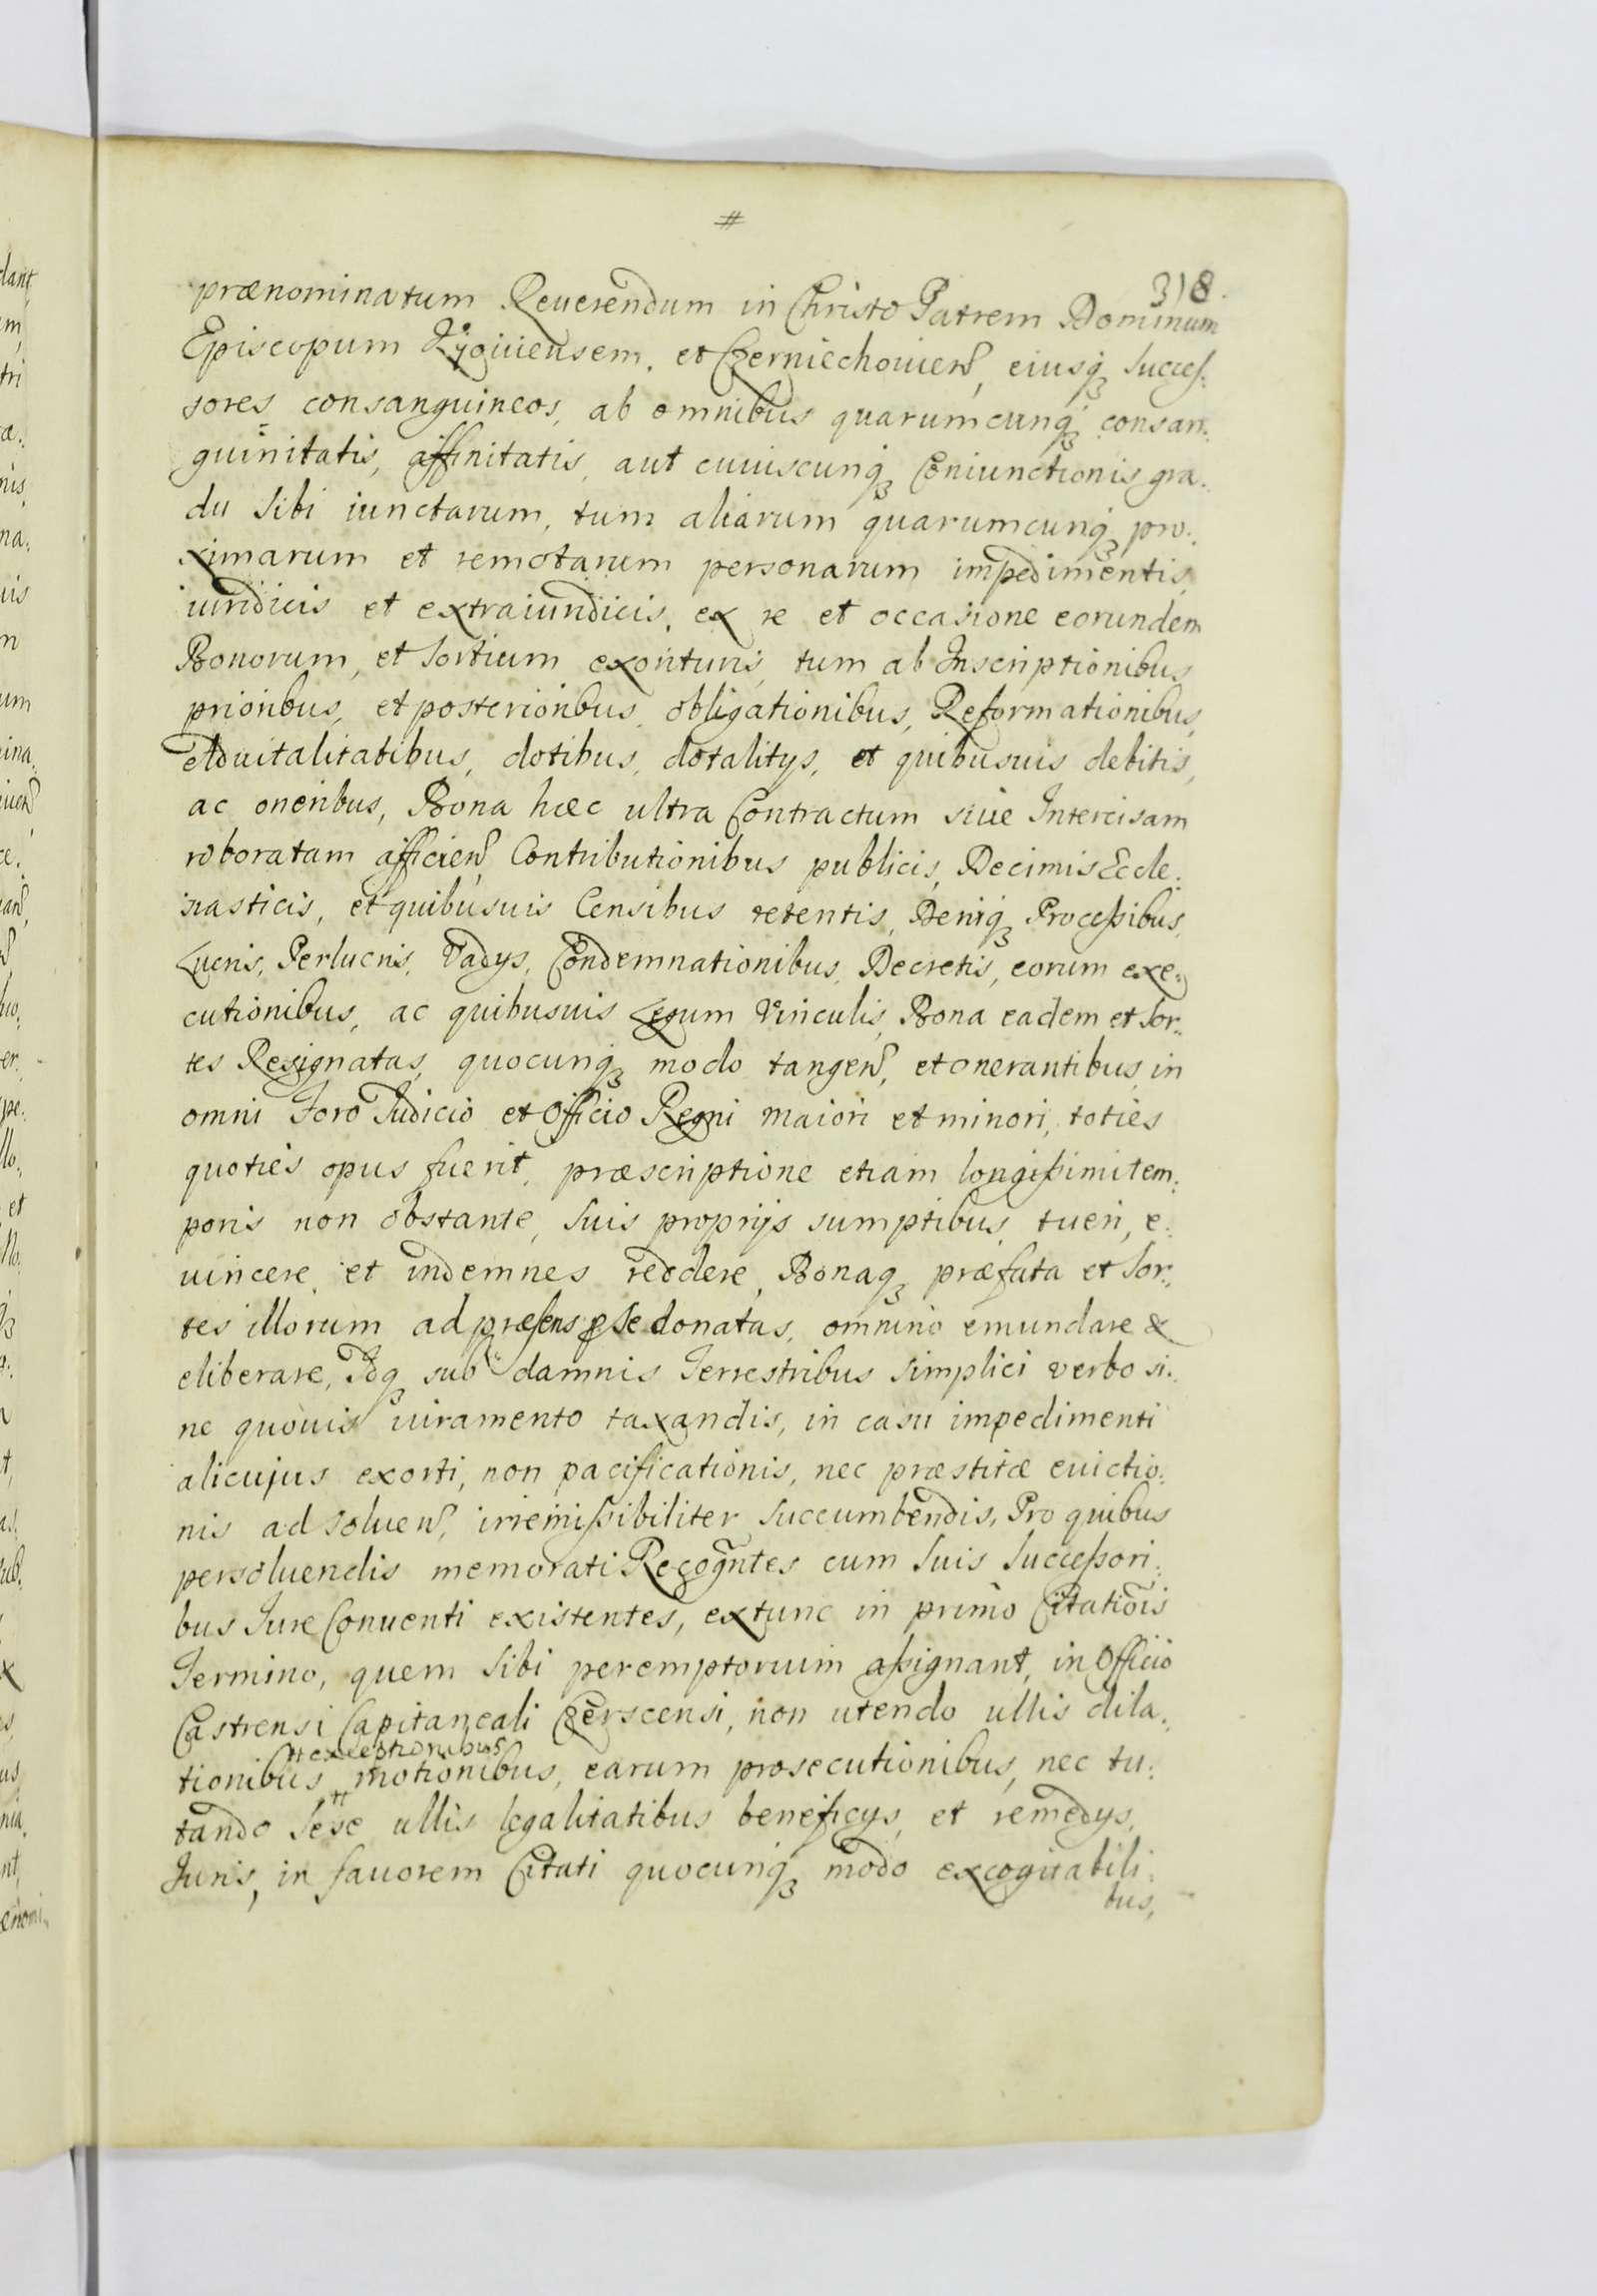 #
318.
prænominatum Reuerendum in Christo Patrem Dominum
Episcopum Kijouiensem, et Czerniechouien, eiusq succes:
sores consanguineos, ab omnibus quarumcunq consan:
guinitatis, affinitatis, aut cuiuscunq Coniunctionis gra:
du sibi iunctarum, tum aliarum quarumcunq pro:
ximarum et remotarum personarum impedimentis,
iuridicis et extraiuridicis, ex re et occasione eorundem
Bonorum, et Sortium exorituris, tum ab Inscriptionibus
prioribus, et posterioribus, obligationibus, Reformationibus,
Aduitalitatibus, dotibus, dotalitys, et quibusuis debitis,
ac oneribus, Bona hæc ultra Contractum siue Intercisam
roboratam afficien, Contributionibus publicis, Decimis Eccle:
siasticis, et quibusuis Censibus retentis, Deniq Processibus,
Lucris, Perlucris, Vadys, Condemnationibus, Decretis, eorum exe:
cutionibus, ac quibusuis Legum Vinculis, Bona eadem et Sor:
tes Resignatas, quocunq modo tangen, et onerantibus, in
omni Foro Iudicio et Officio Regni maiori et minori, toties
quoties opus fuerit, præscriptione etiam longissimi tem:
poris non obstante, suis proprijs sumptibus, tueri, e:
uincere, et indemnes reddere, Bonaq præfata et Sor:
tes illorum ad præsens p se donatas, omnino emundare &
eliberare, Idq sub damnis Terrestribus simplici verbo si:
ne quouis iuramento taxandis, in casu impedimenti
alicujus exorti, non pacificationis, nec præstitæ euictio:
nis ad soluen, irremissibiliter succumbendis, Pro quibus
persoluendis memorati Recogntes cum suis successori:
bus Iure Conuenti existentes, extunc in primo Citatiois
Termino, quem sibi peremptorium assignant, in Officio
Castrensi Capitaneali Czerscensi, non utendo ullis dila:
# exceptionibus
tionibus # motionibus, earum prosecutionibus, nec tu:
tando sese ullis legalitatibus beneficys, et remedys,
Iuris, in fauorem Citati quocunq modo excogitabili:
bus,